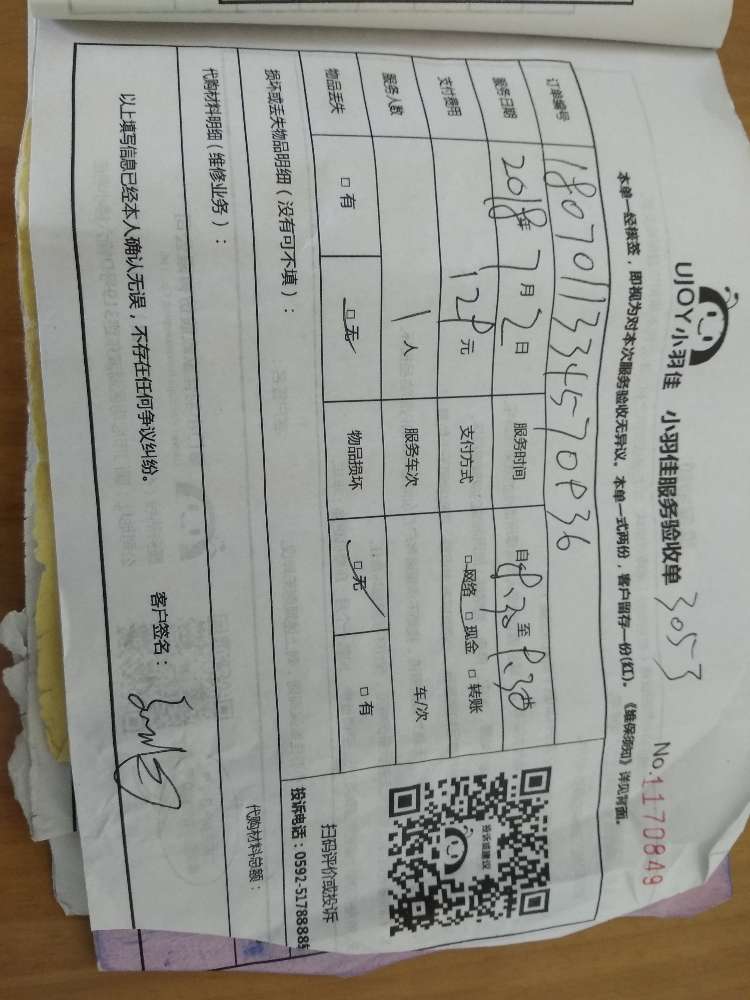 UJOY小羽佳 小羽佳服务验收单 3053
No.1170849
本单一经横签，即视为对本次服务验收无异议。本单一式两份，客户留存一份(红)。《维保须知》详见背面。
订单编号
服务日期 2018年 7月2日 服务时间 自8:30至
支付费用 128元 支付方式 □网络 □现金 □转账
服务人数 1人 服务车次 车/次
物品丢失 □有 □无 物品损坏 □无 □有
投诉或建议
扫码评价或投诉
投诉电话：0592-5178888
损坏或丢失物品明细（没有可不填）：
代购材料明细（维修业务）：
代购材料总额：
以上填写信息已经本人确认无误，不存在任何争议纠纷。
客户签名：